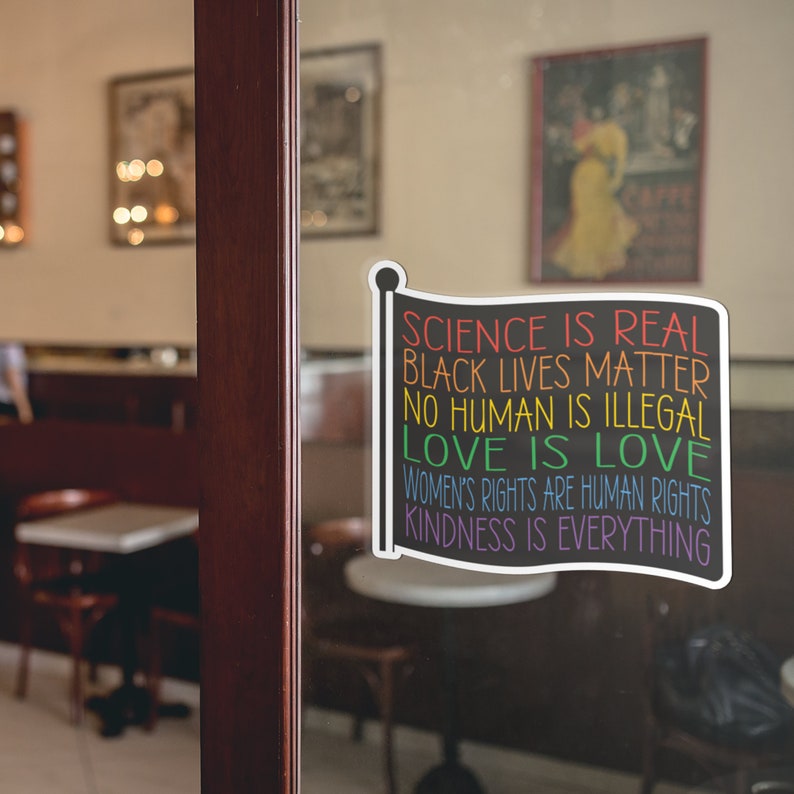 CAFFE
SCIENCE IS REAL
BLACK LIVES MATTER
NO HUMAN IS ILLEGAL
LOVE IS LOVE
WOMEN'S RIGHTS ARE HUMAN RIGHTS
KINDNESS IS EVERYTHING